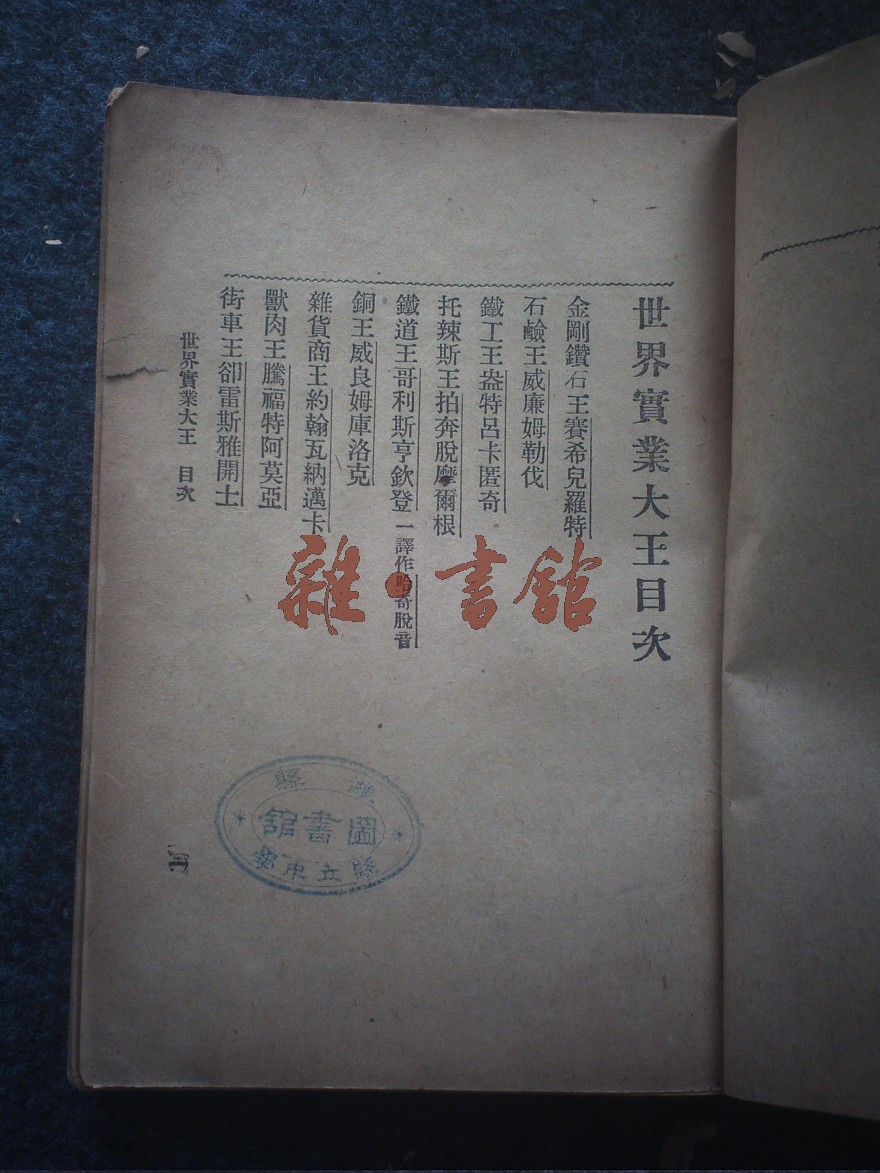 世界實業大王目次
金剛鑽石王賽希兒羅特
石鹼王威廉姆勒伐
鐵工王盎特呂卡匿奇
托辣斯王拍奔脫摩爾根
鐵道王哥利斯亨欽登一譯作哈奇脫音
銅王威良姆庫洛克
雜貨商王約翰瓦納邁卡
獸肉王騰福特阿莫亞
街車王卻雷斯雅開士
世界實業大王 目次
雜·書館
縣
圖書館
縣立中